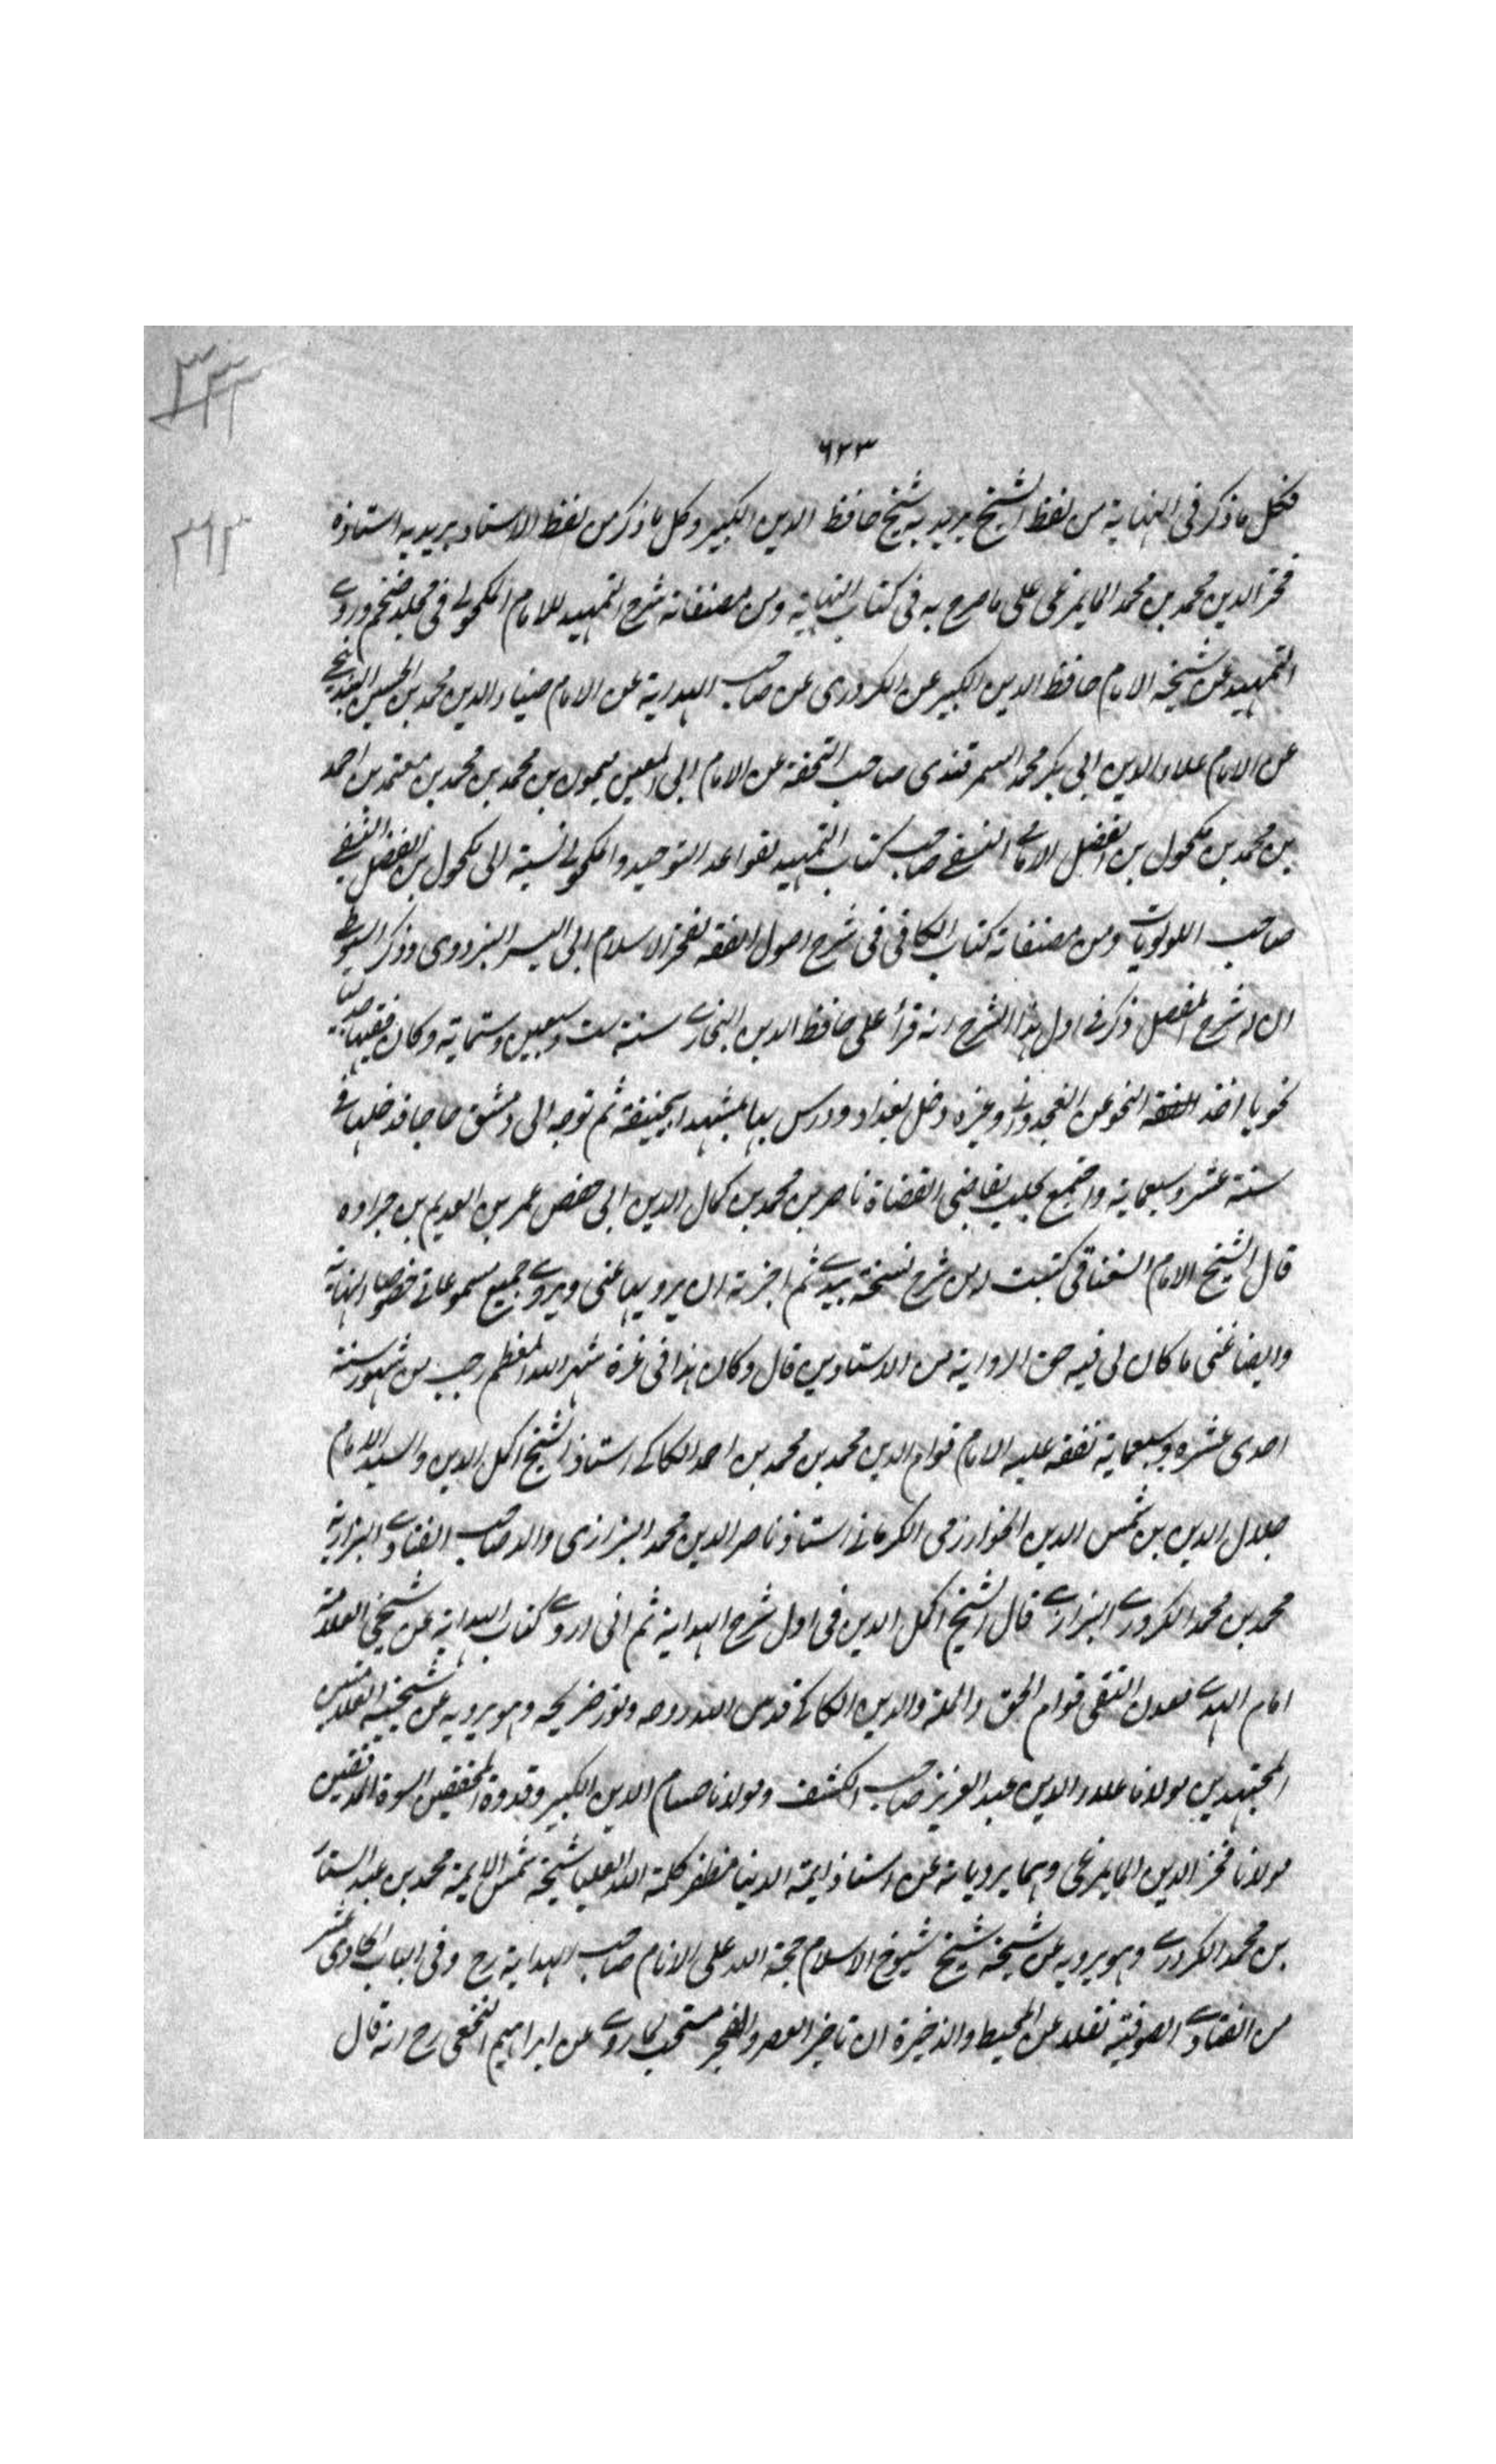 ٦٢٣
فكل ما ذكر فى النهاية من لفظ الشيخ يريد به شيخ حافظ الدين الكبير وكل ما ذكر من لفظ الاستاد يريد به استاذه
فخر الدين محمد بن محمد المايمرغى على ما صرح به فى كتاب النهاية ومن مصنفاته شرح التمهيد للامام المكحولے فى مجلد ضخم وروے
التمهيد عن شيخه الامام حافظ الدين الكبير عن الكردرى عن صاحب الهداية عن الامام ضياء الدين محمد بن الحسين البندنيجے
عن الامام علاء الدين ابى بكر محمد السمرقندى صاحب التحفة عن الامام ابى المعين ميمون بن محمد بن محمد بن معتمد بن احمد
بن محمد بن مكحول بن الفضل النسفے صاحب كتاب التمهيد لقواعد التوحيد والمكحولے نسبة الى مكحول بن الفضل النسفے
صاحب اللولويات ومن مصنفاته كتاب الكافى فى شرح اصول الفقه لفخر الاسلام ابى اليسر البزدوى وذكر السيوطے
ان له شرح المفصل ذكر فى اول هذا الشرح انه قرأ على حافظ الدين البخارے سنة ست وسبعين وستماية وكان فقيها جدليا
نحويا اخذ النحو عن الغجدوانے وغيره دخل بغداد ودرس بها بمشهد ابيحنيفة ثم توجه الى دمشق حاجا فدخلها فے
سنة عشر وسبعماية واجتمع بحلب بقاضى القضاة ناصر بن محمد بن كمال الدين ابى حفص عمر بن العديم بن جراده
قال الشيخ الامام السغناقى كتبت من شرح نسخة بيدے ثم اجزته ان يرويها عنى ويروے جميع مسموعاتے خصوصا النهاية
وايضا عنى ما كان لى فيه حق الرواية من الاستاذين قال وكان هذا فى غرة شهر الله المعظم رجب من شهور سنة
احدى عشره وسبعماية تفقه عليه الامام قوام الدين محمد بن محمد بن احمد الكاكے استاذ الشيخ اكمل الدين والسيد الامام
جلال الدين بن شمس الدين الخوارزمى الكرمانے استاذ ناصر الدين محمد البزازى والد صاحب الفتاوے البزازية
محمد بن محمد الكردرے البزازے قال الشيخ اكمل الدين فى اول شرح الهداية ثم انى اروے كتاب الهداية عن شيخى العلامة
امام الهدے معدن التقى قوام الحق والملة والدين الكاكے قدس الله روحه ونور ضريحه وهو يرويه عن شيخيه العلامتين
المجتهدين مولانا علاء الدين عبد العزيز صاحب الكشف ومولانا حسام الدين الكبير وقدوة المحققين اسوة المدققين
مولانا فخر الدين المايمرغى وهما يرويانه عن استاذ ايمة الدنيا مظفر كلمة الله العليا شيخه شمس الايمة محمد بن عبد الستار
بن محمد الكردرے وهو يرويه عن شيخه شيخ شيوخ الاسلام حجة الله على الانام صاحب الهداية رح وفى الباب الحادى عشر
من الفتاوے الصوفية نقلا عن المحيط والذخيرة ان تاخير العصر والفجر مستحب لما روے عن ابراهيم النخعى رح انه قال